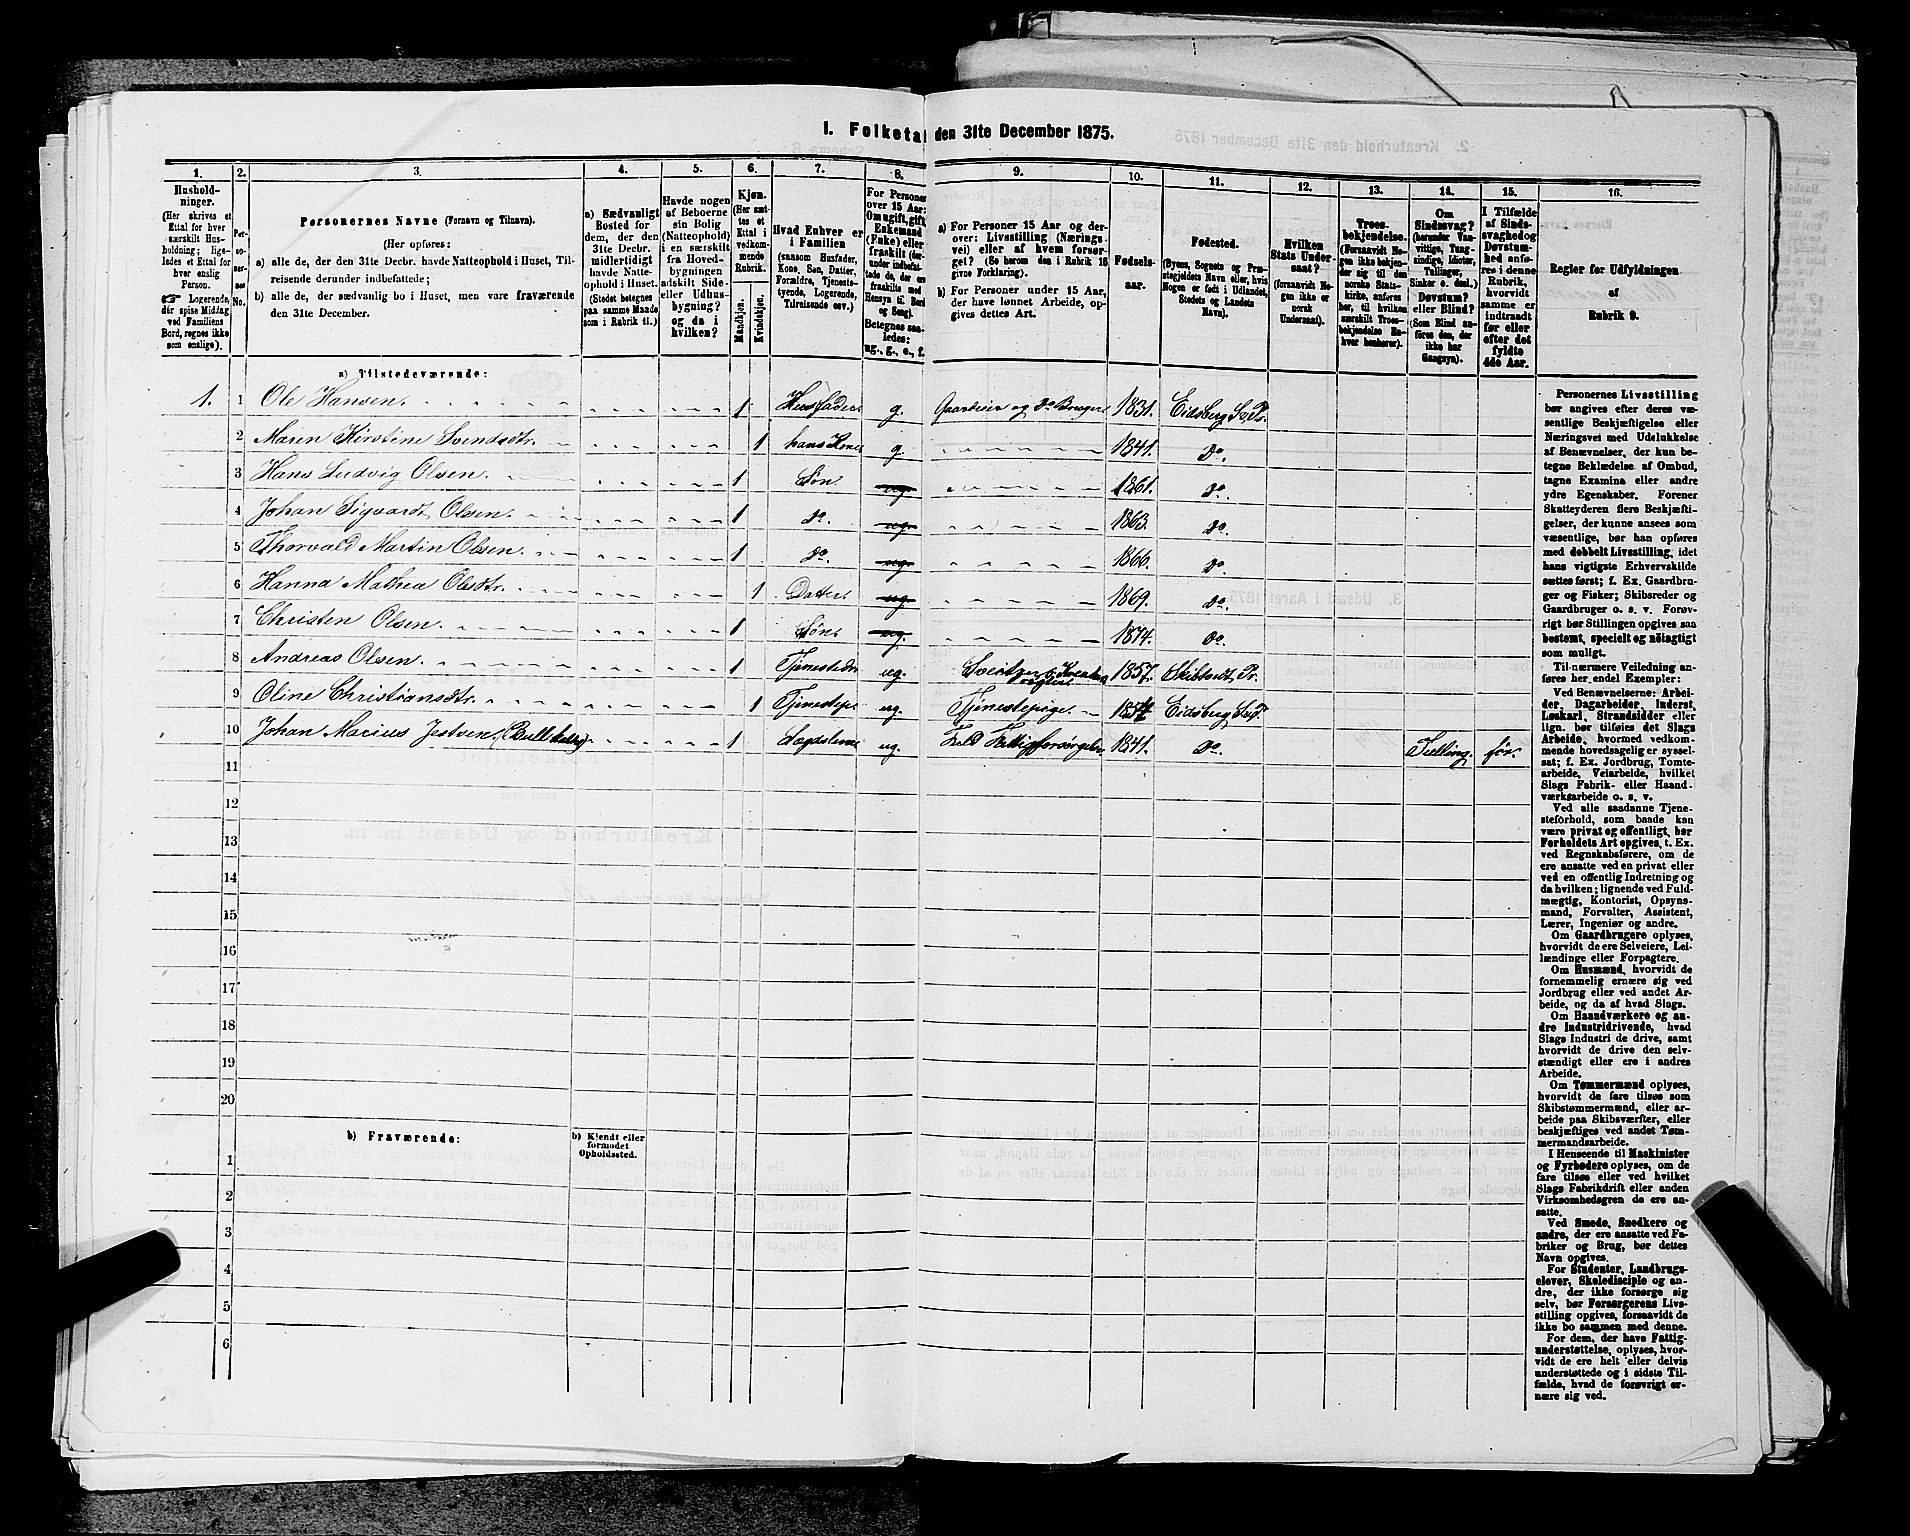 1. Folketal den 31te December 1875.
1. 2. 3. 4. 5. 6. 7. 8. 9. 10. 11. 12. 13. 14. 15. 16.
Hushold-
ninger.
(Her skrives et
Ettal for hver
særskilt Hus-
holdning; lige-
ledes et Ettal for
hver enslig
Person.
☞ Logerende,
der spise Middag
ved Familiens
Bord, regnes ikke
som enslige).
Per-
so-
ner-
nes
No.
Personernes Navne (Fornavn og Tilnavn).
(Her opføres:
a) alle de, der den 31te Decbr. havde Natteophold i Huset, Til-
reisende derunder indbefattede;
b) alle de, der sædvanlig bo i Huset, men vare fraværende
den 31te December.
a) Sædvanligt
Bosted for
dem, der den
31te Decbr.
midlertidigt
havde Natte-
ophold i Huset.
(Stedet betegnes
paa samme Maade
som i Rubrik 11.)
Havde nogen
af Beboerne
sin Bolig
(Natteophold)
en særskilt
fra Hoved-
bygningen
adskilt Side-
eller Udhus-
bygning?
og da i
hvilken?
Kjøn.
(Her sæt-
tes et
Ettal i
vedkom-
mende
Rubrik.
Mandkjøn.
Kvindekjøn.
Hvad Enhver er
i Familien
(saasom Husfader,
Kone, Søn, Datter,
Forældre, Tjeneste-
tyende, Logerende,
Tilreisende osv.)
For Personer
over 15 Aar:
Om ugift, gift,
Enkemand
(Enke) eller
fraskilt (der-
under indbefat-
tede de, der ere
fraskilte med
Hensyn til Bord
og Seng).
Betegnes saa-
ledes:
ug., g., e., f.
a) For Personer 15 Aar og der-
over: Livsstilling (Nærings-
vei) eller af hvem forsør-
get? (Se herom den i Rubrik 16
givne Forklaring).
b) For Personer under 15 Aar,
der have lønnet Arbeide, op-
gives dettes Art.
Fødsels-
aar.
Fødested.
(Byens, Sognets og Præ-
stegjeldets Navn eller, hvis
Nogen er født i Udlandet,
Stedets og Landets
Navn).
Hvilken
Stats Under-
saat?
(forsaavidt No-
gen ikke er
norsk
Undersaat).
Troes-
bekjendelse.
(Forsaavidt No-
gen ikke bekjen-
der sig til den
norske Stats-
kirke, anføres
her, til hvilken
særskilt Troes-
bekjendelse En-
hver henhører).
Om
Sindssvag?
(herunder Van-
vittige, Tung-
sindige, Idioter,
Tullinger,
Sinker o. desl.)
Døvstum?
eller Blind?
(Som Blind an-
føres den, der
ikke har
Gangsyn).
I Tilfælde
af Sinds-
svaghed og
Døvstum-
hed anfø-
res i denne
Rubrik,
hvorvidt
samme er
indtraadt
før eller
efter det
fyldte
4de Aar.
Regler for Udfyldningen
af
Rubrik 9.
a) Tilstedeværende:
1. 1 Ole Hansen. 1 Husfader g. Gaardeier og do Bruger 1831. Eidsberg S. Pr.
2 Maren Kirstine Svendsdtr. 1 hans Kone g. 1841. Do.
3 Hans Ludvig Olsen. 1 Søn ug 1861. Do.
4 Johan Sigvardt Olsen. 1 Do. ug 1863. Do.
5 Thorvald Martin Olsen. 1 Do ug 1866. Do.
6 Hanna Mathea Olsdtr. 1 Datter ug 1869. Do.
7 Christen Olsen. 1 Søn ug. 1874. Do
8 Andreas Olsen. 1 ug. 1857. Pr.
9 Oline Christiansdtr. 1 ug. Tjenestepige 1854 Eidsberg
10 Johan Marius Jestsen. 1 Lagdslem ug. Fattigforsørgelse 1841. Do. Tulling før.
11
12
13
14
15
16
17
18
19
20
b) Fraværende:
b) Kjendt eller
formodet
Opholdssted.
1
2
3
4
5
6
Personernes Livsstilling
bør angives efter deres væ-
sentlige Beskjæftigelse eller
Næringsvei med Udelukkelse
af Benævnelser, der kun be-
tegne Beklædelse af Ombud,
tagne Examina eller andre
ydre Egenskaber. Forener
Skatteyderen flere Beskjæfti-
gelser, der kunne ansees som
væsentlige, bør han opføres
med dobbelt Livsstilling, idet
hans vigtigste Erhvervskilde
sættes først; f. Ex. Gaardbru-
ger og Fisker; Skibsreder og
Gaardbruger o. s. v. Forøv-
rigt bør Stillingen opgives saa
bestemt, specielt og nöiagtigt
som muligt.
Til nærmere Veiledning an-
føres her endel Exempler:
Ved Benævnelserne: Arbei-
der, Dagarbeider, Inderst,
Løskarl, Strandsidder eller
lign. bør tilføies det Slags
Arbeide, hvormed vedkom-
mende hovedsagelig er syssel-
sat; f. Ex. Jordbrug, Tomte-
arbeide, Veiarbeide, hvilket
Slags Fabrik- eller Haand-
værksarbeide o. s. v.
Ved alle saadanne Tjene-
steforhold, som baade kan
være privat og offentligt, bør
Forholdets Art opgives, t. Ex.
ved Regnskabsførere, om de
ere ansatte ved en privat eller
ved en offentlig Indretning og
da hvilken; lignende ved Fuld-
mægtig, Kontorist, Opsyns-
mand, Forvalter, Assistent,
Lærer, Ingeniør og andre.
Om Gaardbrugere oplyses,
hvorvidt de ere Selveiere, Lei-
lændinge eller Forpagtere.
Om Husmænd, hvorvidt de
fornemmelig ernære sig ved
Jordbrug eller ved andet Ar-
beide, og da af hvad Slags.
Om Haandværkere og an-
dre Industridrivende, hvad
Slags Industri de drive, samt
hvorvidt de drive den selv-
stændigt eller ere i andres
Arbeide.
Om Tømmermænd oplyses,
hvorvidt de fare tilsøs som
Skibstømmermænd, eller ar-
beide paa Skibsværfter, eller
beskjæftiges ved andet Tøm-
mermandsarbeide.
I Henseende til Maskinister
og Fyrbødere oplyses, om de
fare tilsøs eller ved hvilket
Slags Fabrikdrift eller anden
Virksomhedsgren de ere an-
satte.
Ved Smede, Snedkere og
andre, der ere ansatte ved Fa-
briker og Brug, bør dettes
Navn opgives.
For Studenter, Landbrugs-
elever, Skoledisciple og an-
dre, der ikke forsørge sig
selv, bør Forsørgerens Livs-
stilling opgives, forsaavidt de
ikke bo sammen med denne.
For dem, der have Fattig-
understøttelse, oplyses, hvor-
vidt de ere helt eller delvis
understøttede og i sidste Til-
fælde, hvad de forøvrigt er-
nære sig ved.